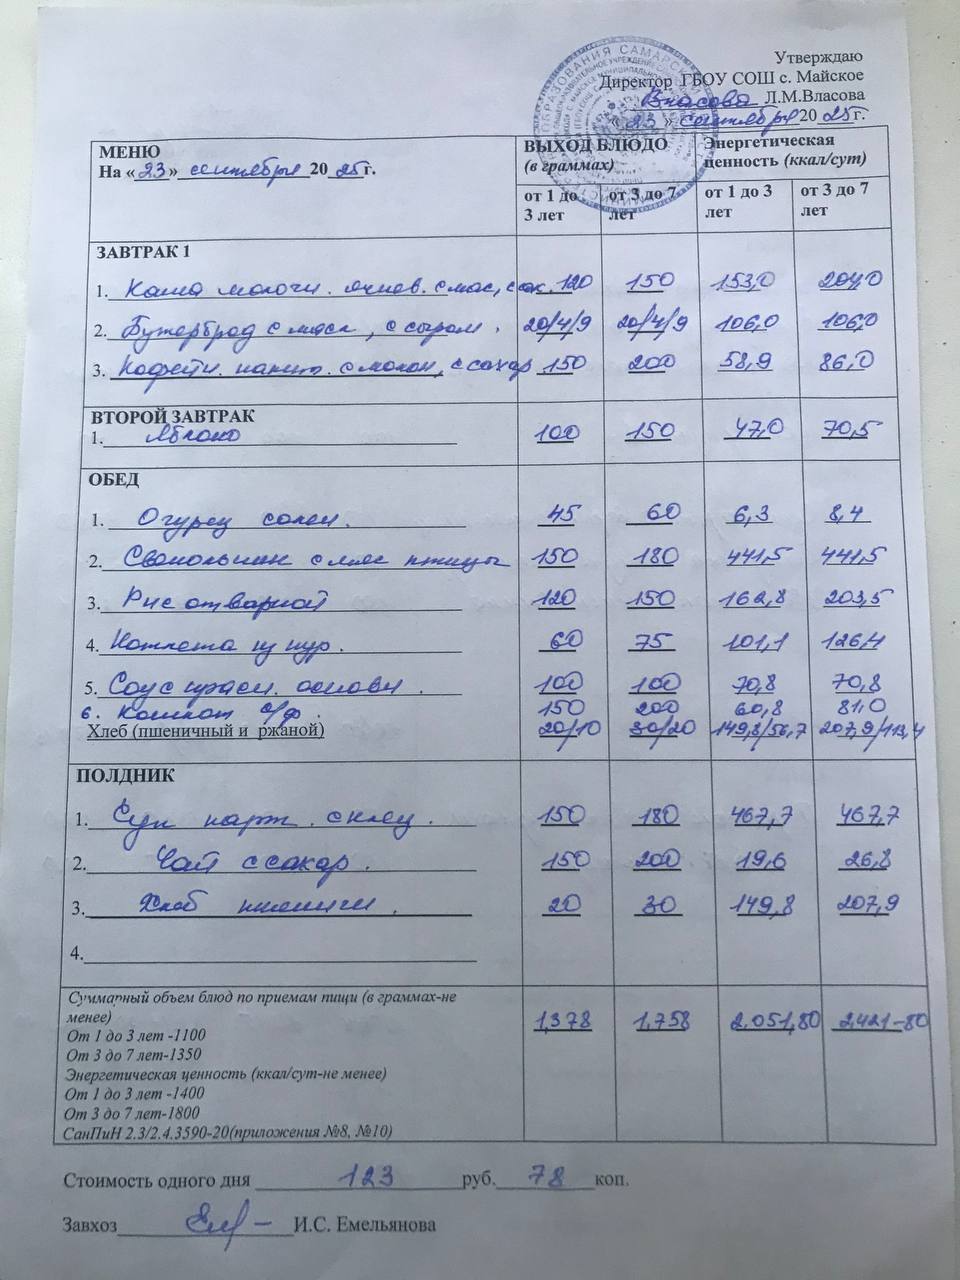 Утверждаю
Директор ГБОУ СОШ с. Майское
Власова Л.М.Власова
«23» сентября 2025г.
МЕНЮ
На «23» сентября 2025г.
ВЫХОД БЛЮДО
(в граммах)
Энергетическая
ценность (ккал/сут)
от 1 до 3 лет от 3 до 7 лет от 1 до 3 лет от 3 до 7 лет
ЗАВТРАК 1
1. Каша молочн. ячнев. с мас, сах. 120 150 153,0 204,0
2. Бутерброд с масл, с сыром. 20/4/9 20/4/9 106,0 106,0
3. Кофейн. напит. с молок, с сахар 150 200 58,9 86,0
ВТОРОЙ ЗАВТРАК
1. Яблоко 100 150 47,0 70,5
ОБЕД
1. Огурец солен. 45 60 6,3 8,4
2. Свекольник с мяс птицы 150 180 441,5 441,5
3. Рис отварной 120 150 162,8 203,5
4. Котлета из кур. 60 75 101,1 126,4
5. Соус красн. основн. 100 100 70,8 70,8
6. Компот с/ф. 150 200 60,8 81,0
Хлеб (пшеничный и ржаной) 20/10 30/20 149,8/56,7 207,9/113,4
ПОЛДНИК
1. Суп карт. с клец. 150 180 467,7 467,7
2. Чай с сахар. 150 200 19,6 26,8
3. Хлеб пшеничн. 20 30 149,8 207,9
4.
Суммарный объем блюд по приемам пищи (в граммах-не
менее) 1,378 1,758 2.051,80 2421-80
От 1 до 3 лет -1100
От 3 до 7 лет-1350
Энергетическая ценность (ккал/сут-не менее)
От 1 до 3 лет -1400
От 3 до 7 лет-1800
СанПиН 2.3/2.4.3590-20(приложения №8, №10)
Стоимость одного дня 123 руб. 78 коп.
Завхоз И.С. Емельянова